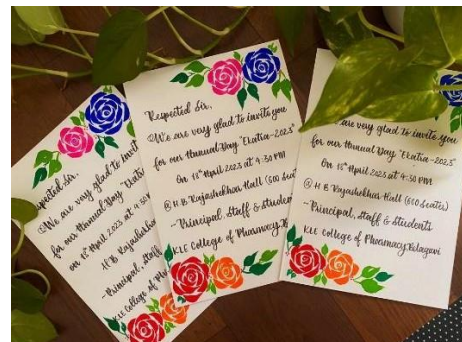 Respected Sir,
We are very glad to invit
for our Annual Day "Ekatva
on 18th April 2023 at
H.B. Rajashekha
- Principal, Staff
KLE College of Ph
Respected Sir,
We are very glad to invite you
for our Annual Day "Ekatva-2023"
On 18th April 2023 at 4:30 PM
@ H.B. Rajashekhar Hall (600 Seater)
- Principal, Staff & Students
KLE College of Pharmacy,
are very glad to invite you
for our Annual Day "Ekatva-2023"
On 18th April 2023 at 4:30 PM
@ H.B. Rajashekhar Hall (600 Seater)
- Principal, Staff & Students
KLE College of Pharmacy, Belagavi